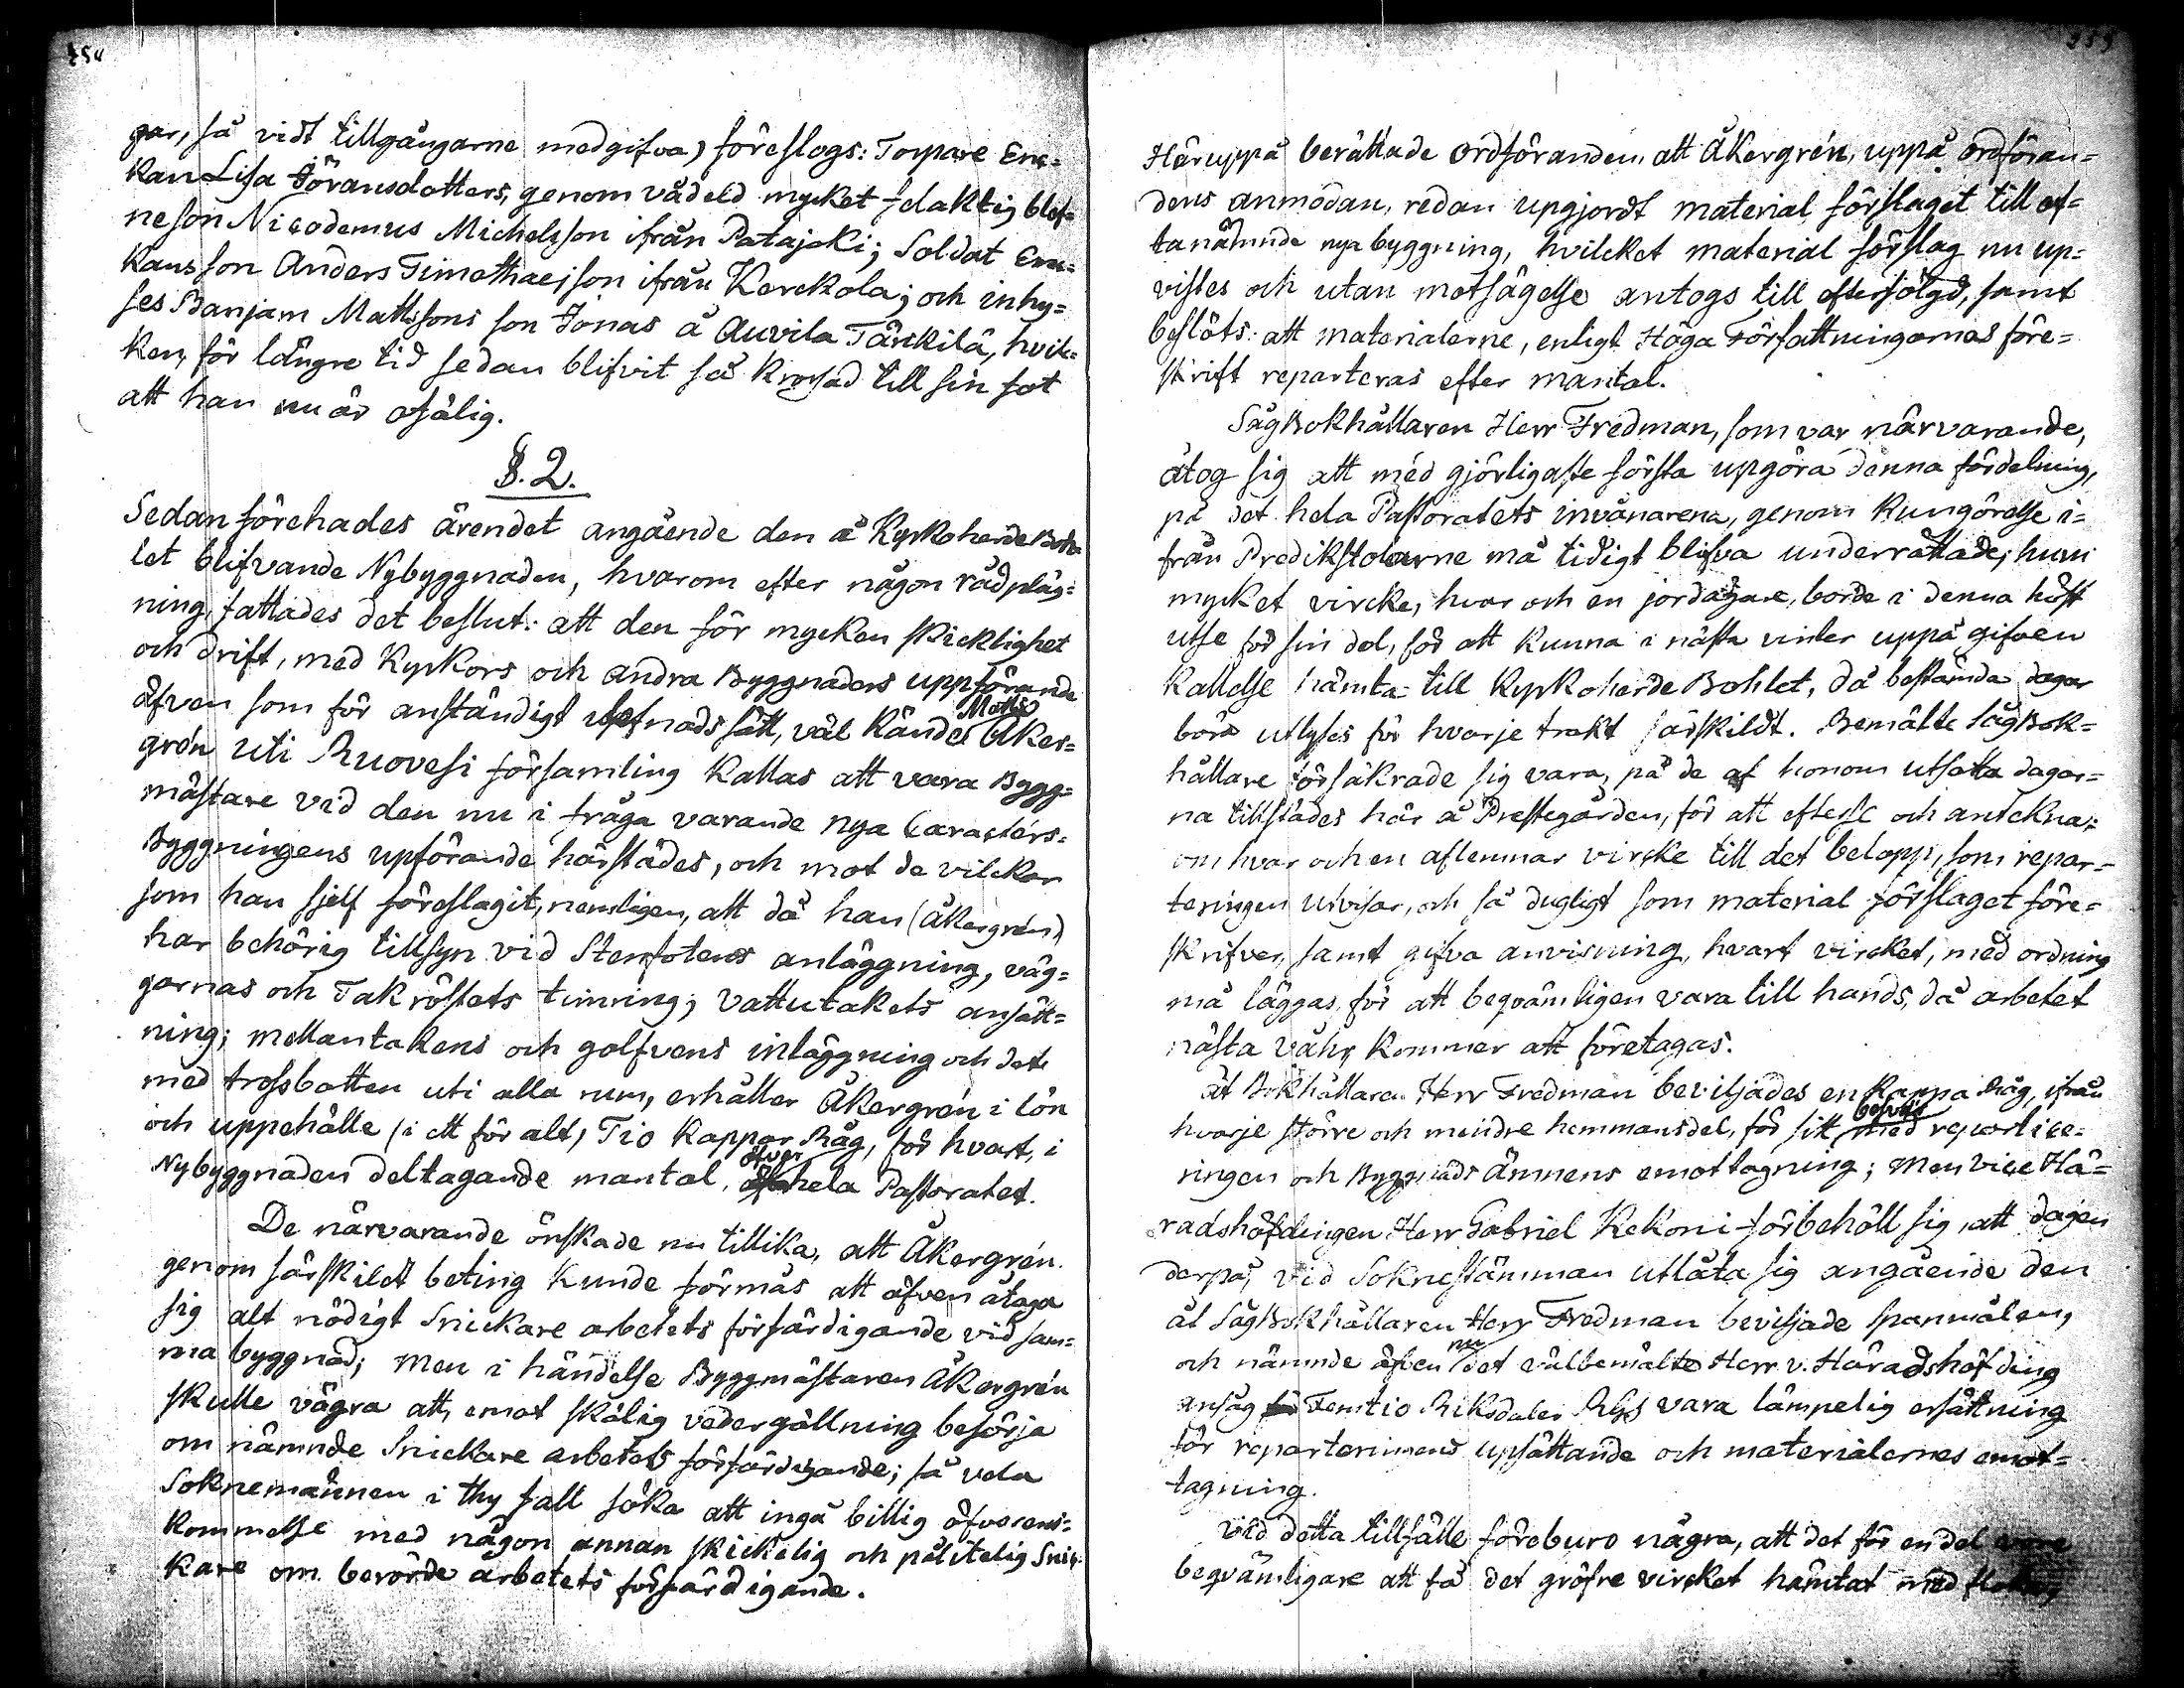 254
gar, så vidt tillgångarne medgifva) föreslogs: Torpare En¬
kan Lisa Jöransdotters, genom vådeld mycket skaktig blef¬
ne son Nicodemus Michelsson ifrån Patajoki; Soldat Enc¬
kans son Anders Timothaei son ifrån Kerckola; och inhy¬
ses Banjam Mattssons son Jonas å Auvila Tärkilä, hvil¬
ken, för längre tid sedan blifvit så krossad till sin fot
att han nu är ofälig.
§. 2.
Sedan förehades ärendet angående den å Kyrkoherde Boh
let blifvande Nybyggnaden, hvarom efter någon rådpläg¬
ning, fattades det beslut: att den för mycken skicklighet
och drift, med Kyrkors och andra Byggnaders uppförande
äfven som för anständigt lefnads sätt, väl kände Matts Åker¬
grén uti Ruovesi församling kallas att vara Bygg¬
mästare vid den nu i fråga varande nya Caracters¬
Byggningens upförande härstädes, och mot de vilckor
som han sjelf föreslagit, nemligen, att då han (Åkergrén)
har behörig tillsyn vid Stenfotens anläggning, väg¬
garnas och Takröstets timring; Vattutakets ansätt¬
ning; mellantakens och golfvens inläggning och det
med trossbotten uti alla rum, erhåller Åkergrén i lön
och uppehälle (i ett för alt) Tio Kappar Råg, för hvart, i
Nybyggnaden deltagande mantal, öfver hela Pastoratet.
De närvarande önskade nu tillika, att Åkergrén
genom särskildt beting kunde förmås att äfven åtaga
sig alt nödigt Snickare arbetets förfärdigande vid sam¬
ma byggnad; Men i händelse Byggmästaren Åkergrén
skulle vägra att, emot skälig vedergällning besörja
om nämnde Snickare arbetets förfärdigande; så vela
Soknemännen i thy fall söka att ingå billig öfverens¬
kommelse med någon annan skickelig och pålitelig Snic¬
kare om berörde arbetets förfärdigande.
255
Häruppå berättade ordföranden, att Åkergrén, uppå ordföran¬
dens anmodan, redan upgjordt material förslaget till of¬
tanämnde nya byggning, hvilcket material förslag nu up¬
vistes och utan motsägelse antogs till efterfölgd, samt
beslöts: att materialerne, enligt Höga Författningarnas före¬
skrift reparteras efter mantal.
SågBokhållaren Herr Fredman, som var närvarande,
åtog sig att med gjörligaste första upgöra denna fördelning,
på det hela Pastoratets invånarena, genom kungörelse i¬
från Predikstolarne må tidigt blifva underrättade, huru
mycket vircke, hvar och en jordägare, borde i denna höst
utse för sin del, för att kunna i nästa vinter uppå gifven
kallelse hämta till Kyrkoherde Bohlet, då bestämda dagar
böra utlyses för hvarje trakt särskildt. Bemälte SågBok¬
hållare försäkrade sig vara, på de af honom utsatta dagar¬
na tillstädes här å Prestegården, för att efterse och anteckna:
om hvar och en aflemnar vircke till det belopp, som repar¬
teringen utvisar, och så dugligt som material förslaget före¬
skrifver, samt gifva anvisning, hvart vircket, med ordning
må läggas, för att beqvämligen vara till hands, då arbetet
nästa våhr kommer att företagas.
åt Bokhållaren Herr Fredman beviljades en Kappa Råg, ifrån
hvarje större och mindre hemmansdel, för sitt besvär med repartice¬
ringen och Byggnads Ämnens emottagning; Men Vice Hä¬
radshöfdingen Herr Gabriel Kekoni förbehöll sig, att dagen
derpå, vid Soknestämman utlåta sig angående den
åt SågBokhållaren Herr Fredman beviljade spanmålen,
och nämnde äfven nu det välbemälte Herr v. Häradshöfding
ansåg Femtio Riksdaler Rgs vara lämpelig ersättning
för reparterimens upsättande och materialernes emot¬
tagning.
Vid detta tillfälle föreburo några, att det för en del vore
beqvämligare att få det gröfre vircket hämtat med